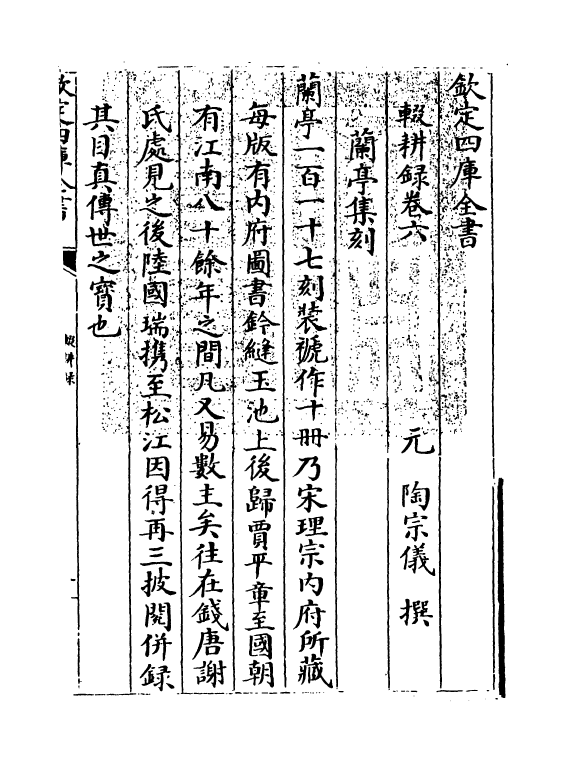 欽定四庫全書
輟耕録卷六
元　陶宗儀　撰
蘭亭集刻
蘭亭一百一十七刻裝褫作十冊乃宋理宗内府所藏
每版有内府圖書鈐縫玉池上後歸賈平章至國朝
有江南八十餘年之間凡又易數主矣往在錢唐謝
氏處見之後陸國瑞携至松江因得再三披閲併録
其目真傳世之寶也
欽定四庫全書
輟耕録
一